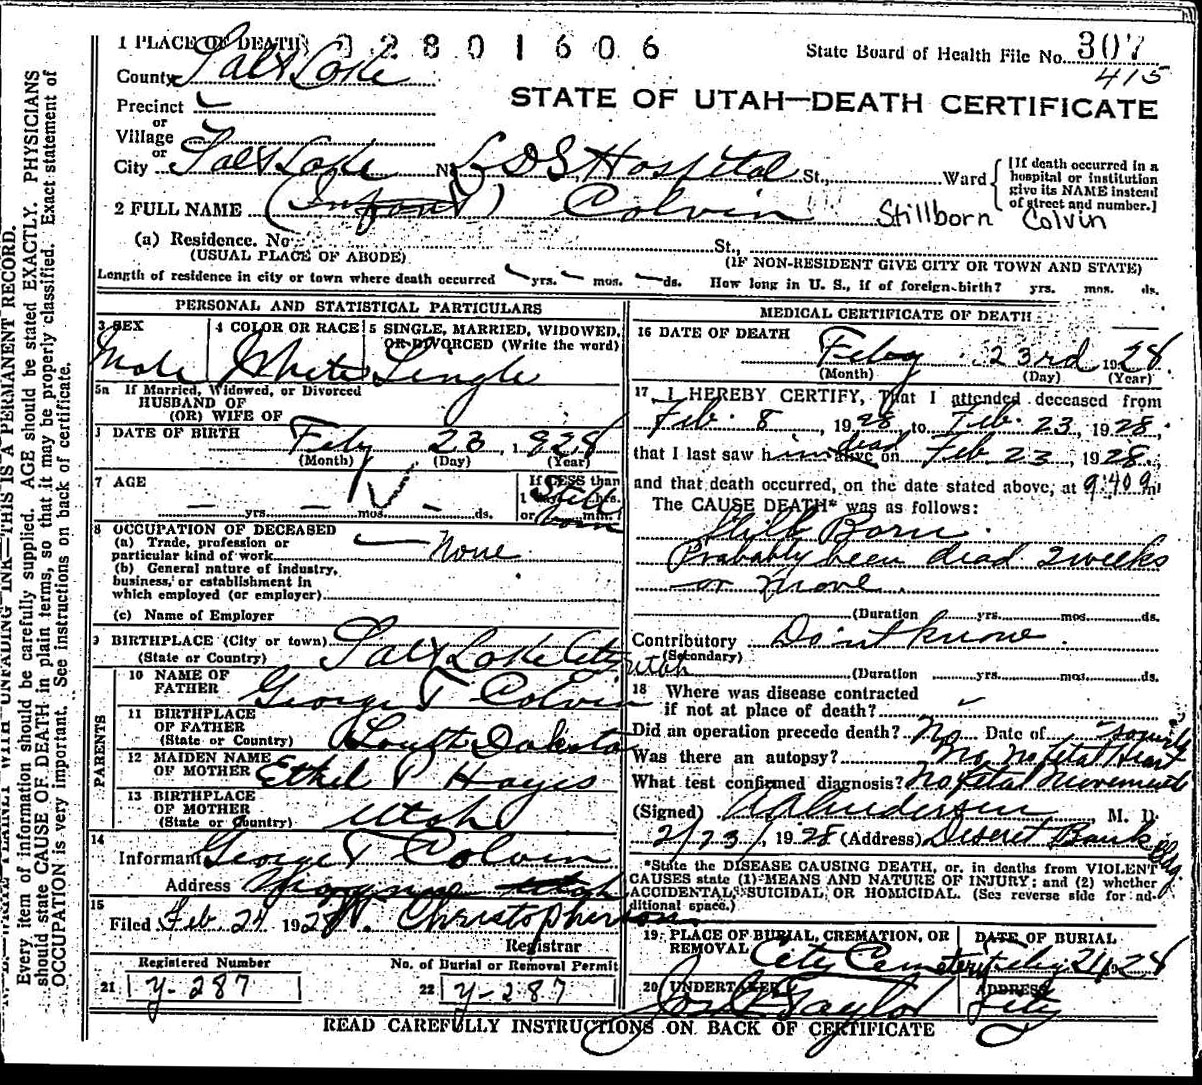 1 PLACE OF DEATH 02801606
State Board of Health File No. 307
415
County Salt Lake
STATE OF UTAH—DEATH CERTIFICATE
Precinct
or
Village
or
City Salt Lake No. L D S Hospital St., Ward
[If death occurred in a hospital or institution give its NAME instead of street and number.]
2 FULL NAME (Infant) Colvin Stillborn Colvin
(a) Residence. No. St.,
(USUAL PLACE OF ABODE) (IF NON-RESIDENT GIVE CITY OR TOWN AND STATE)
Length of residence in city or town where death occurred yrs. mos. ds. How long in U. S., if of foreign birth? yrs. mos. ds.
PERSONAL AND STATISTICAL PARTICULARS
3 SEX Male
4 COLOR OR RACE White
5 SINGLE, MARRIED, WIDOWED, OR DIVORCED (Write the word) Single
5a If Married, Widowed, or Divorced
HUSBAND OF
(OR) WIFE OF
DATE OF BIRTH Feby 23, 1928
(Month) (Day) (Year)
7 AGE — yrs. — mos. — ds.
If LESS than 1 day, hrs. or min. Still born
8 OCCUPATION OF DECEASED
(a) Trade, profession or particular kind of work None
(b) General nature of industry, business, or establishment in which employed (or employer)
(c) Name of Employer
9 BIRTHPLACE (City or town) Salt Lake City
(State or Country) Utah
PARENTS
10 NAME OF FATHER George T Colvin
11 BIRTHPLACE OF FATHER
(State or Country) South Dakota
12 MAIDEN NAME OF MOTHER Ethel P Hayes
13 BIRTHPLACE OF MOTHER
(State or Country) Utah
14
Informant George T Colvin
Address Utah
15
Filed Feb. 24 1928 W. Christopherson
Registrar
Registered Number
21 Y-287
No. of Burial or Removal Permit
22 Y-287
MEDICAL CERTIFICATE OF DEATH
16 DATE OF DEATH
Feby 23rd 1928
(Month) (Day) (Year)
17 I HEREBY CERTIFY, That I attended deceased from
Feb. 8, 1928, to Feb. 23, 1928,
that I last saw him alive dead on Feb 23, 1928
and that death occurred, on the date stated above, at 9:40 a m
The CAUSE DEATH* was as follows:
Still Born.
Probably been dead 2 weeks
or more.
(Duration yrs. mos. ds.
Contributory Don't know.
(Secondary)
(Duration yrs. mos. ds.
18 Where was disease contracted
if not at place of death?
Did an operation precede death? No Date of
Was there an autopsy? No. No fetal Heart sounds
What test confirmed diagnosis? No fetal Movements
(Signed) Andersen M. D.
2/23/, 1928 (Address) Deseret Bank Bldg.
*State the DISEASE CAUSING DEATH, or, in deaths from VIOLENT
CAUSES state (1) MEANS AND NATURE OF INJURY; and (2) whether
ACCIDENTAL, SUICIDAL, OR HOMICIDAL. (See reverse side for ad-
ditional space.)
19 PLACE OF BURIAL, CREMATION, OR REMOVAL City Cemetery
DATE OF BURIAL Feby 24 1928
20 UNDERTAKER Taylor
ADDRESS City
READ CAREFULLY INSTRUCTIONS ON BACK OF CERTIFICATE
WITH UNFADING INK—THIS IS A PERMANENT RECORD.
Every item of information should be carefully supplied. AGE should be stated EXACTLY. PHYSICIANS
should state CAUSE OF DEATH in plain terms, so that it may be properly classified. Exact statement of
OCCUPATION is very important. See instructions on back of certificate.